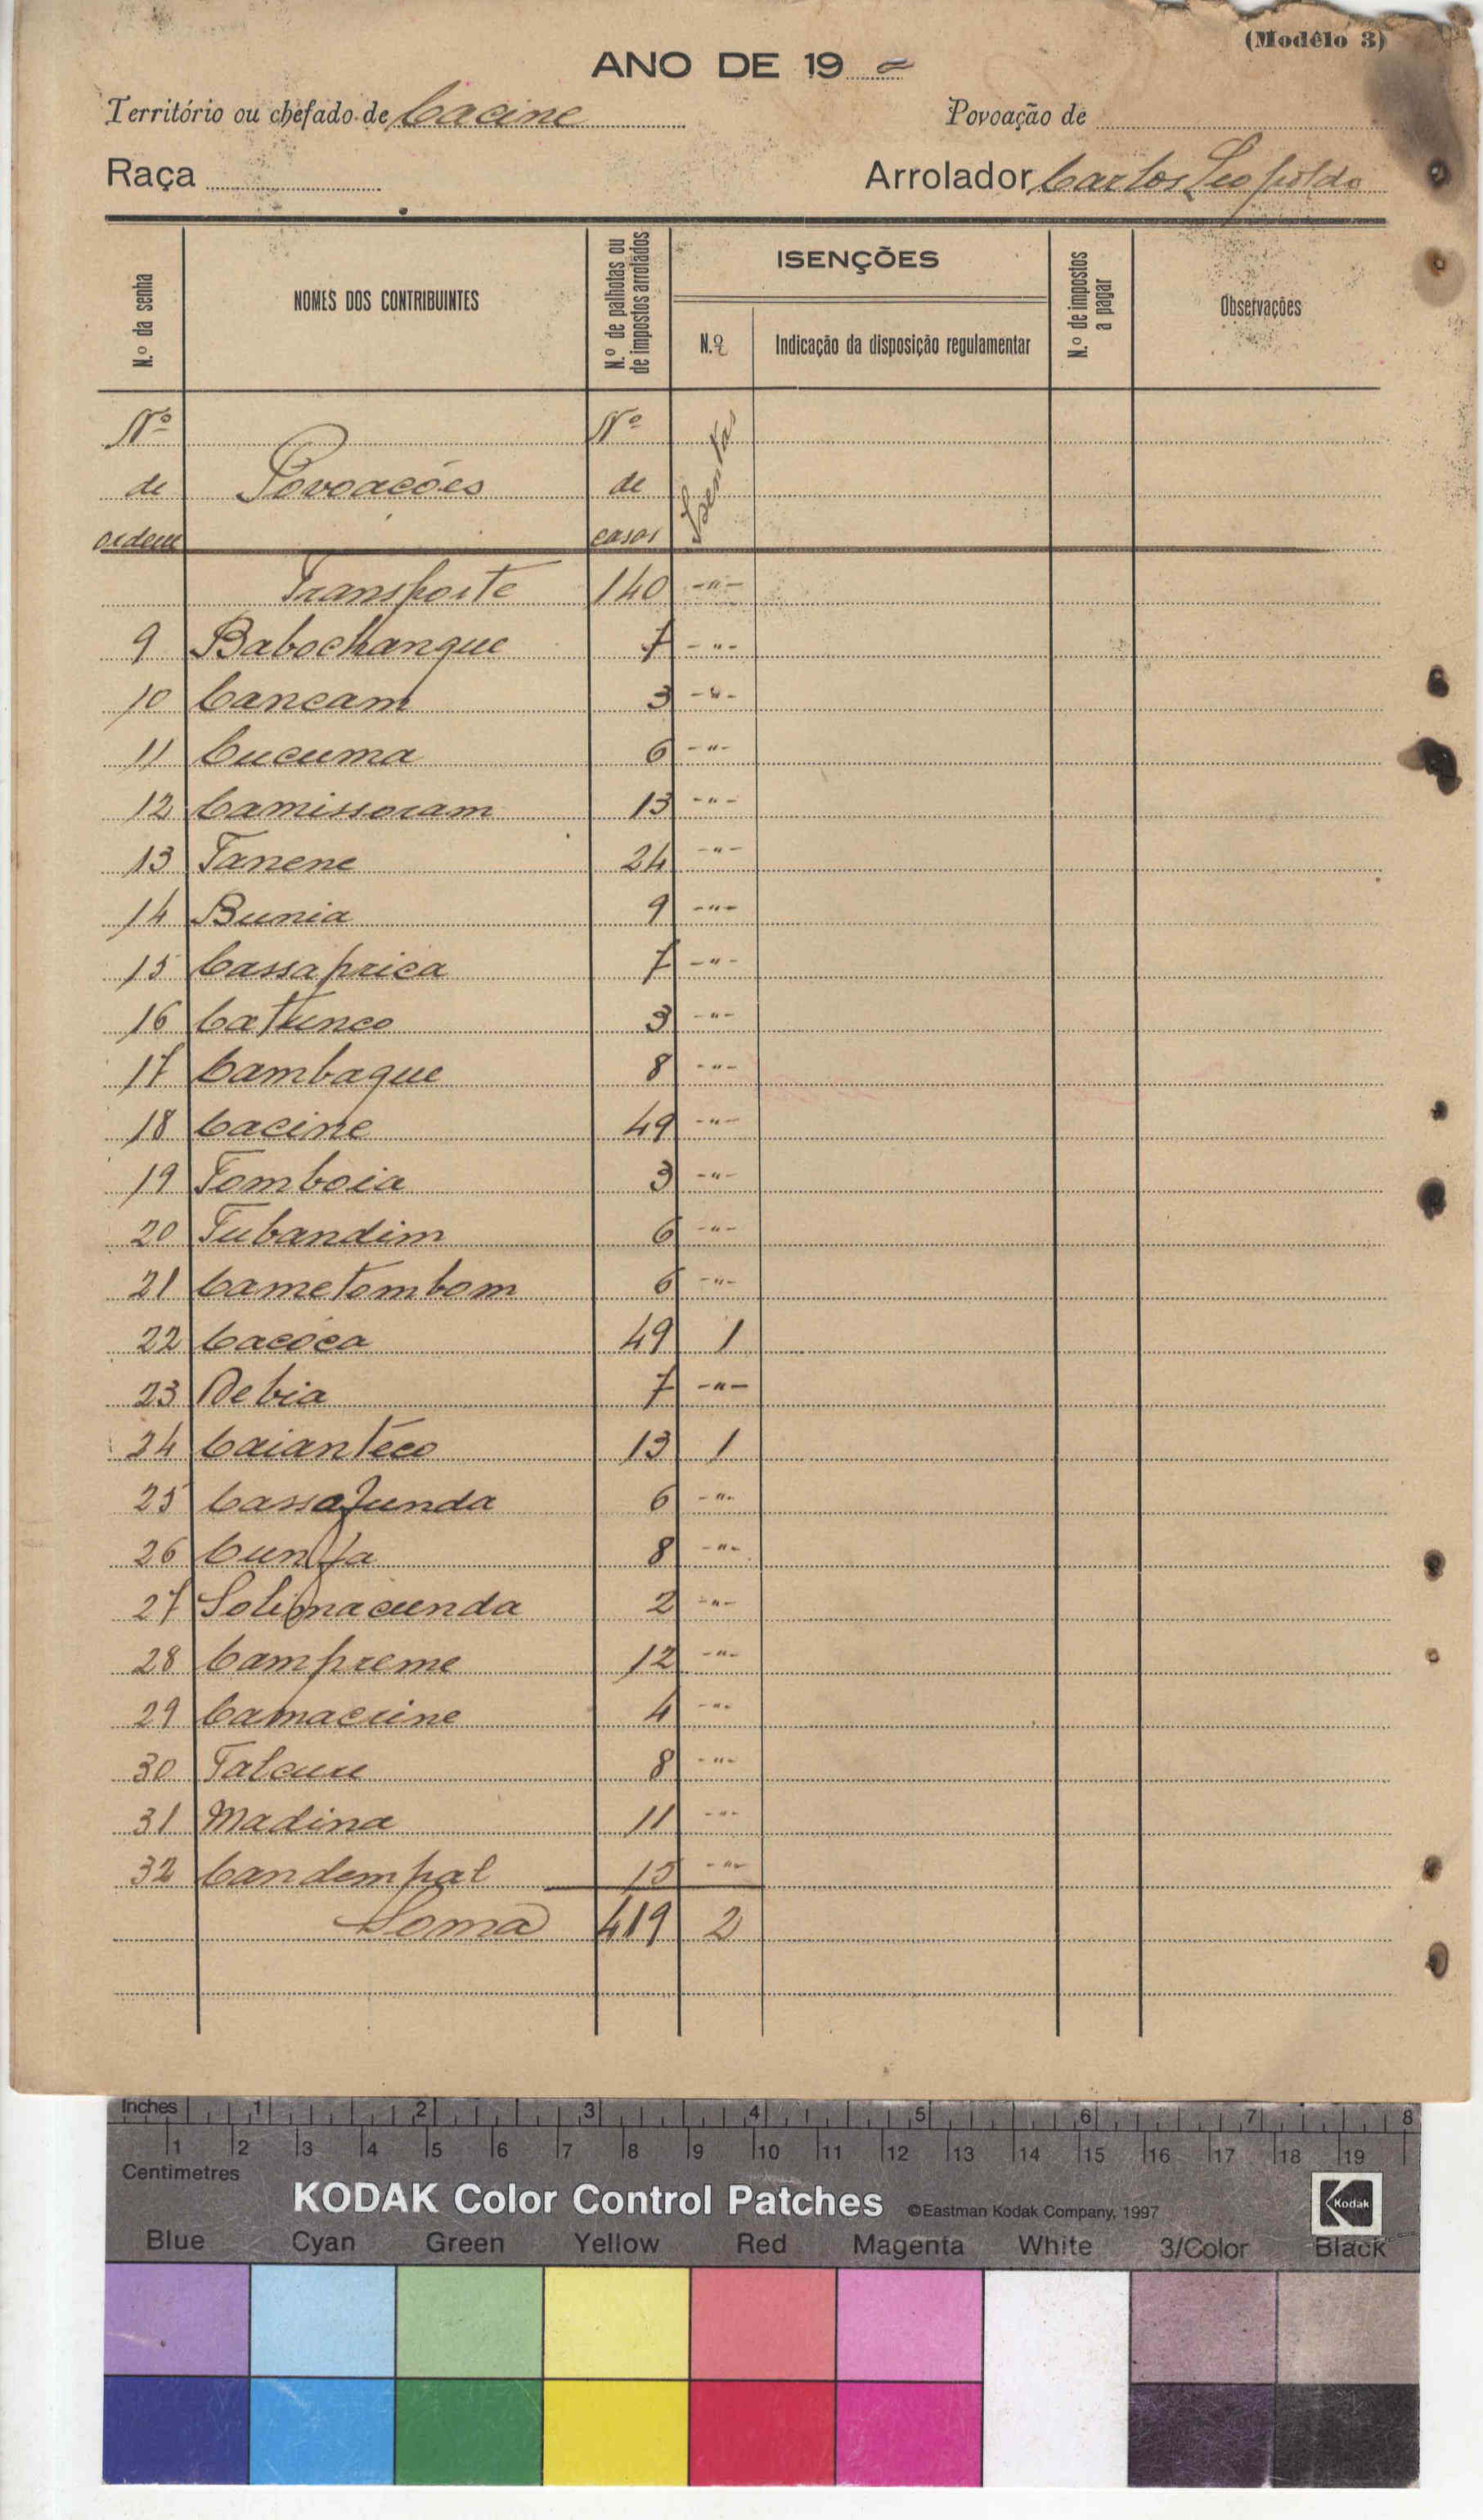 (Modêlo 3)
ANO DE 19
Território ou chefado de Cacine Povoação de
Raça Arrolador Carlos Leopoldo
N.º da senha
NOMES DOS CONTRIBUINTES
N.º de palhotas ou de impostos arrolados
ISENÇÕES
N.º
Indicação da disposição regulamentar
N.º de impostos a pagar
Observações
Nº de ordem Povoações Nº de casas Isentas
Transporte 140 -"-
9 Babochanque 7 -"-
10 Cancam 3 -"-
11 Cucuma 6 -"-
12 Camissoram 13 -"-
13 Tanene 24 -"-
14 Bunia 9 -"-
15 Cassaprica 7 -"-
16 Catunco 3 -"-
17 Cambaque 8 -"-
18 Cacine 49 -"-
19 Tomboia 3 -"-
20 Tubandim 6 -"-
21 Cametombom 6 -"-
22 Cacóca 49 1
23 Debia 7 -"-
24 Caiantéco 13 1
25 Cassafunda 6 -"-
26 Cunfa 8 -"-
27 Solimacunda 2 -"-
28 Campreme 12 -"-
29 Camacúne 4 -"-
30 8 -"-
31 Madina 11 -"-
32 Candempal 15 -"-
Soma 419 2
Inches 1 2 3 4 5 6 7 8
1 2 3 4 5 6 7 8 9 10 11 12 13 14 15 16 17 18 19
Centimetres
KODAK Color Control Patches ©Eastman Kodak Company, 1997 Kodak
Blue Cyan Green Yellow Red Magenta White 3/Color Black